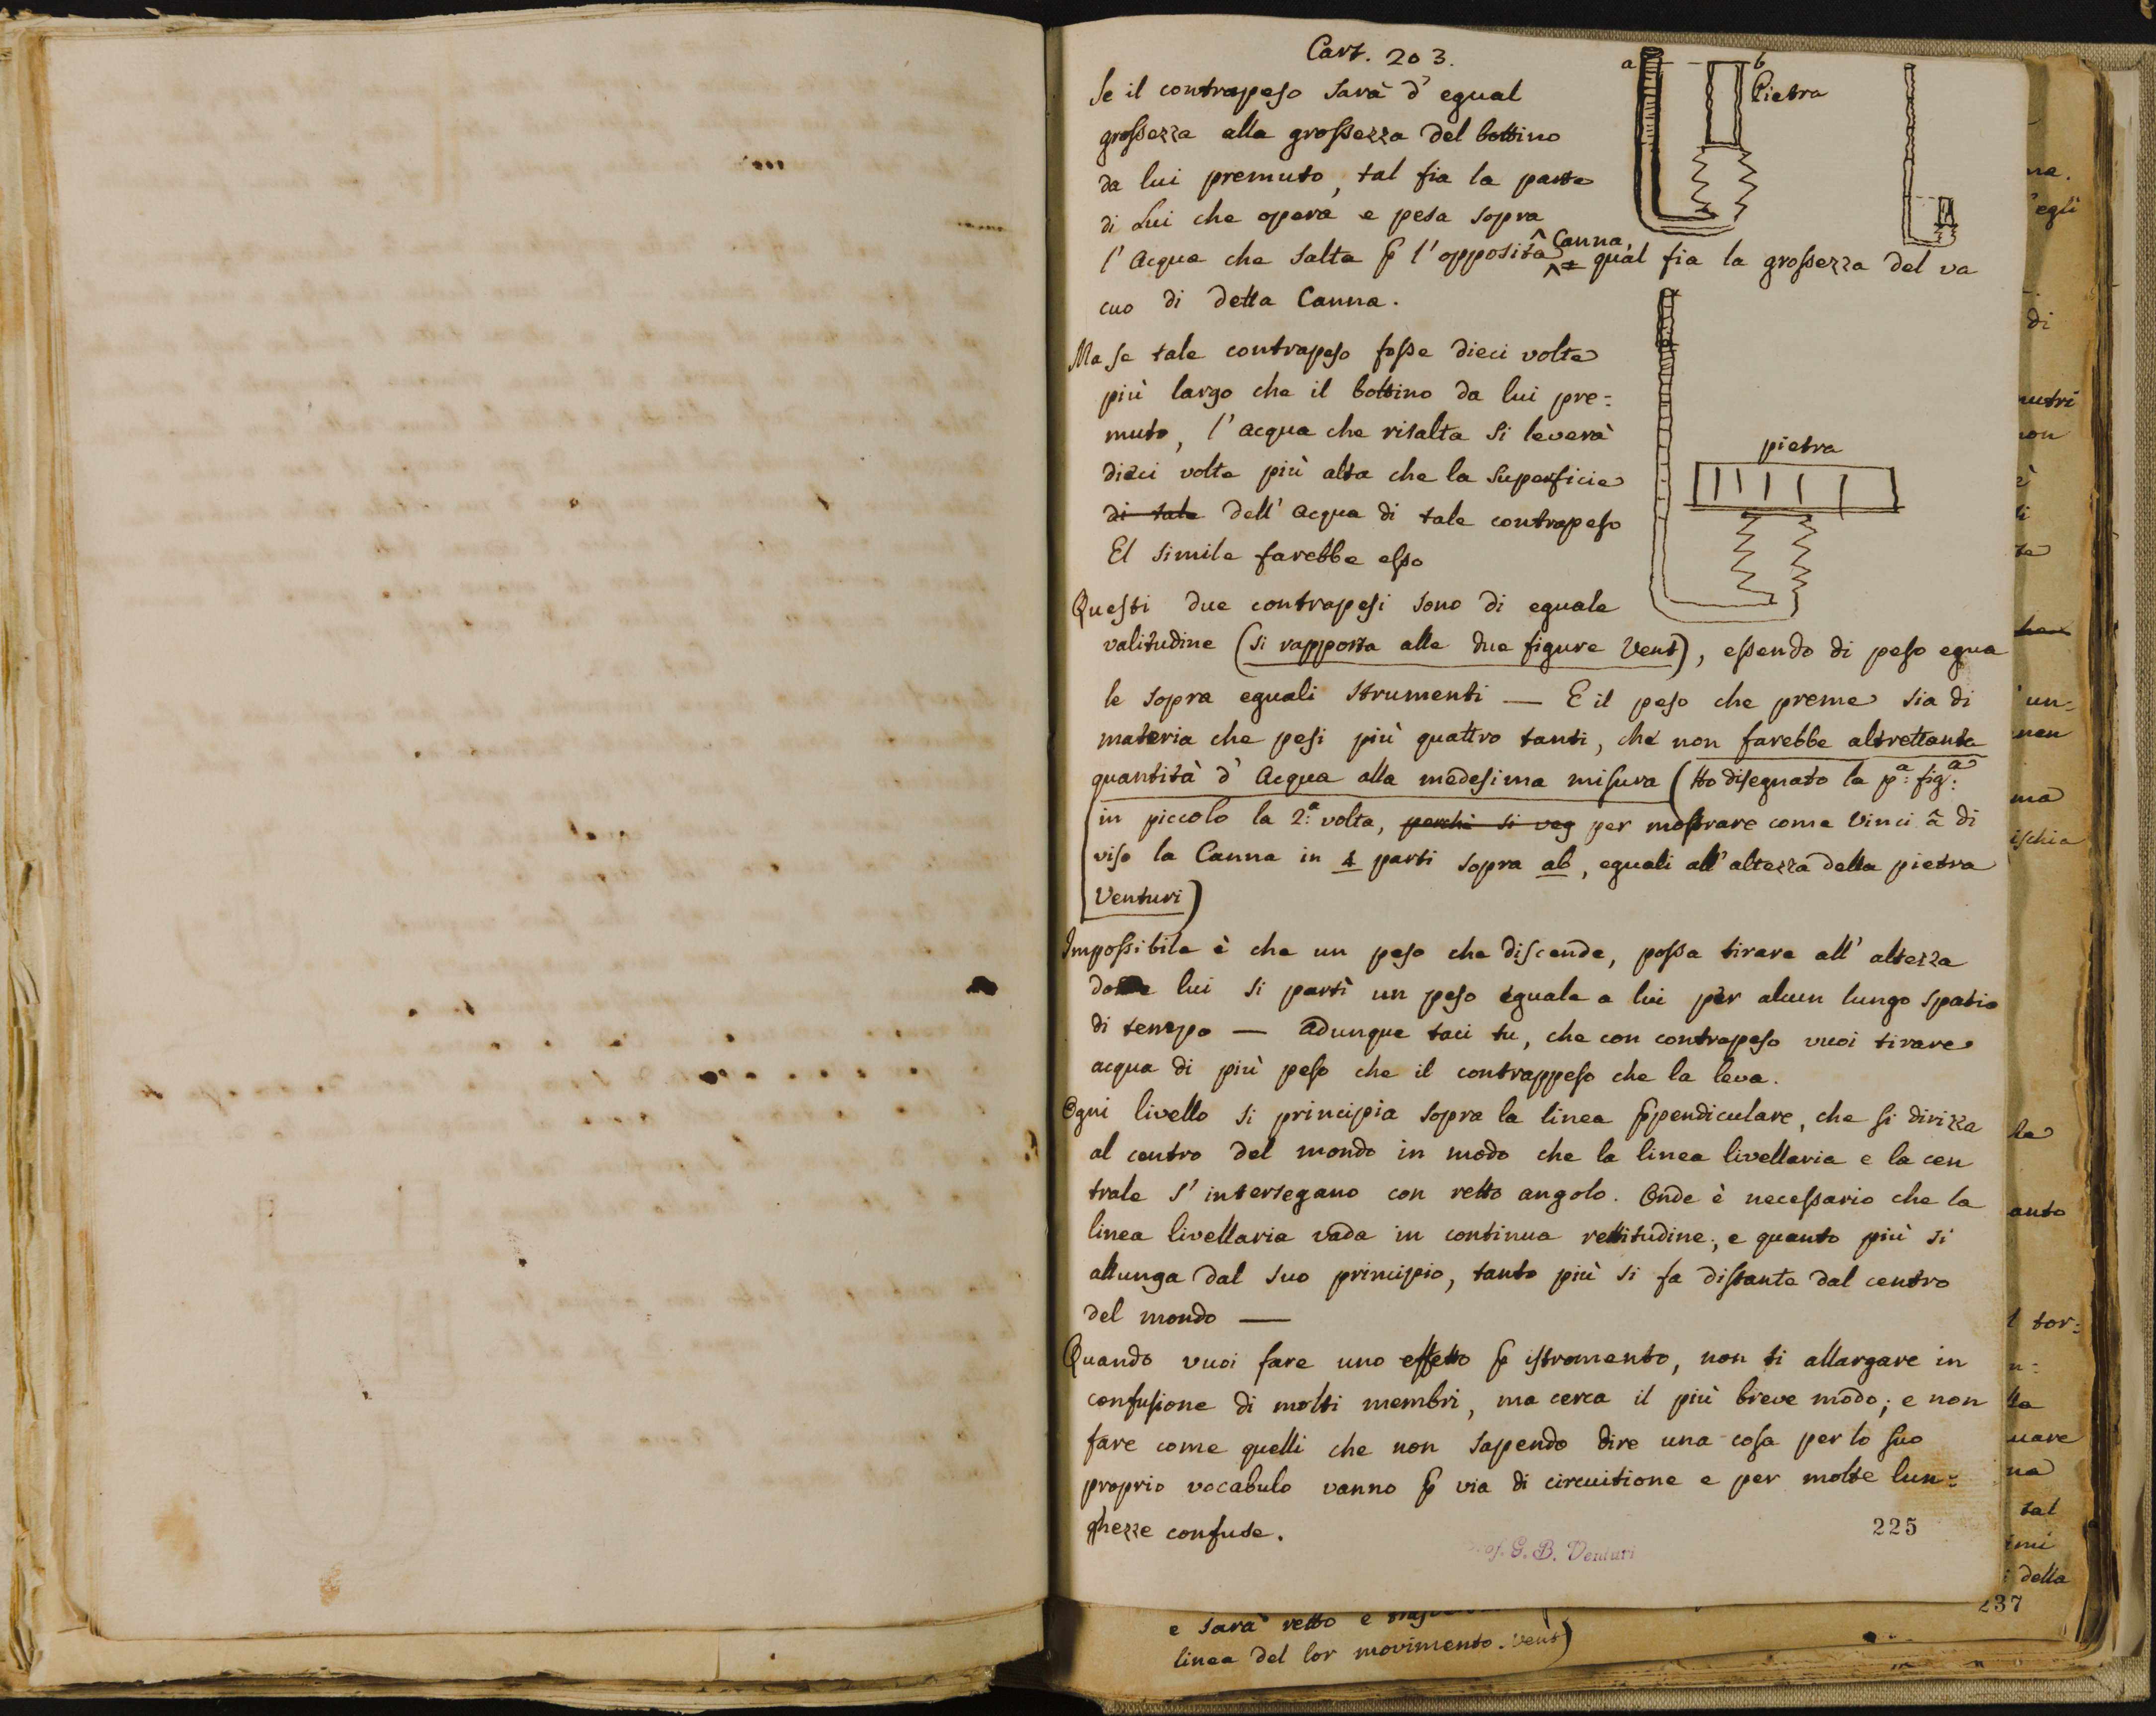 Cart. 203.
a b
Pietra
Se il contrapeso sarà d' egual
grossezza alla grossezza del bottino
da lui premuto, tal fia la parte
di Lui che opera e pesa sopra
l' Acqua che salta p l' opposita Canna, qual fia la grossezza del va
cuo di detta Canna.
Ma se tale contrapeso fosse dieci volte
più largo che il bottino da lui pre=
muto, l' acqua che risalta si leverà
dieci volte più alta che la superficie
di tale dell' acqua di tale contrapeso
El simile farebbe esso
pietra
Questi due contrapesi sono di eguale
valitudine (si rapporta alle due figure Vent), essendo di peso egua
le sopra eguali strumenti — E il peso che preme sia di
materia che pesi più quattro tanti, che non farebbe altrettanta
quantità d' Acqua alla medesima misura (Ho disegnato la pa: figa:
in piccolo la 2a: volta, perchè si veg per mostrare come Vinci à di
viso la Canna in 4 parti sopra ab, eguali all' altezza della pietra
Venturi)
Impossibile è che un peso che discende, possa tirare all' altezza
donde lui si partì un peso eguale a lui per alcun lungo spatio
di tempo — Adunque taci tu, che con contrapeso vuoi tirare
acqua di più peso che il contrappeso che la leva.
Ogni livello si principia sopra la linea ppendiculare, che si dirizza
al centro del mondo in modo che la linea livellaria e la cen
trale s' intersegano con retto angolo. Onde è necessario che la
linea livellaria vada in continua rettitudine; e quanto più si
allunga dal suo principio, tanto più si fa distante dal centro
del mondo —
Quando vuoi fare uno effetto p istromento, non ti allargare in
confusione di molti membri, ma cerca il più breve modo; e non
fare come quelli che non sapendo dire una cosa per lo suo
proprio vocabulo vanno p via di circuitione e per molte lun=
ghezze confuse.
225
Prof. G. B. Venturi
237
e sarà retto e
linea del lor movimento. Vent)
egli
di
nutri
non
un=
nen
ma
ischia
le
anto
l tor=
n=
ta
uare
na
tal
imi
della